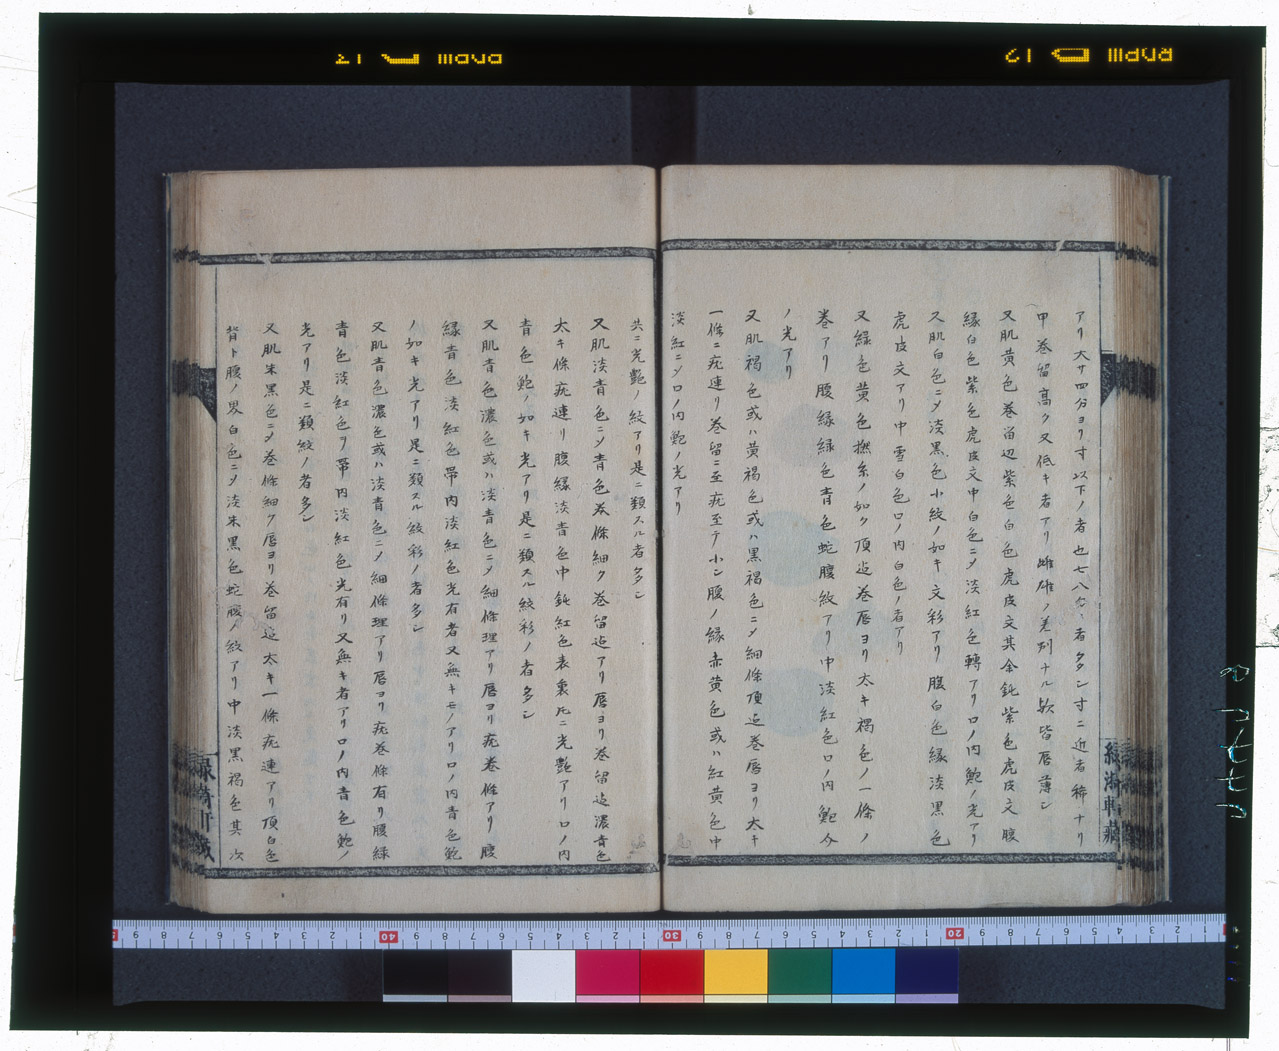 アリ大サ四分ヨリ寸以下ノ者也七八分ノ者多シ寸ニ近者稀ナリ
甲巻留高ク又低キ者アリ雌雄ノ差別ナル歟皆唇薄シ
又肌黄色巻留辺紫色白色虎皮文其余鈍紫色虎皮文腹
縁白色紫色虎皮文中白色ニメ淡紅色轉アリ口ノ内鮑ノ光アリ
又肌白色ニメ淡黒色小紋ノ如キ文彩アリ腹白色縁淡黒色
虎皮文アリ中雪白色口ノ内白色ノ者アリ
又緑色黄色撫糸ノ如ク頂迠巻唇ヨリ太キ褐色ノ一條ノ
巻アリ腹縁緑色青色蛇腹紋アリ中淡紅色口ノ内鮑今
ノ光アリ
又肌褐色或ハ黄褐色或ハ黒褐色ニメ細條頂迠巻唇ヨリ太キ
一條ニ疣連リ巻留ニ至疣至テ小シ腹ノ縁赤黄色或ハ紅黄色中
淡紅ニメ口ノ内鮑ノ光アリ
共ニ光艶ノ紋アリ是ニ類スル者多シ
又肌淡青色ニメ青色巻條細ク巻留迠アリ唇ヨリ巻留迠濃青色
太キ條疣連リ腹縁淡青色中鈍紅色表裏共ニ光艶アリ口ノ内
青色鮑ノ如キ光アリ是ニ類スル紋彩ノ者多シ
又肌青色濃色或ハ淡青色ニメ細條理アリ唇ヨリ疣巻條アリ腹
縁青色淡紅色帯内淡紅色光有者又無キモノアリ口ノ内青色鮑
ノ如キ光アリ是ニ類スル紋彩ノ者多シ
又肌青色濃色或ハ淡青色ニメ細條理アリ唇ヨリ疣巻條有リ腹緑
青色淡紅色ヲ帯内淡紅色光有リ又無キ者アリ口ノ内青色鮑ノ
光アリ是ニ類紋ノ者多シ
又肌朱黒色ニメ巻條細ク唇ヨリ巻留迠太キ一條疣連アリ頂白色
背ト腹ノ界白色ニメ淡朱黒色蛇腹ノ紋アリ中淡黒褐色其次